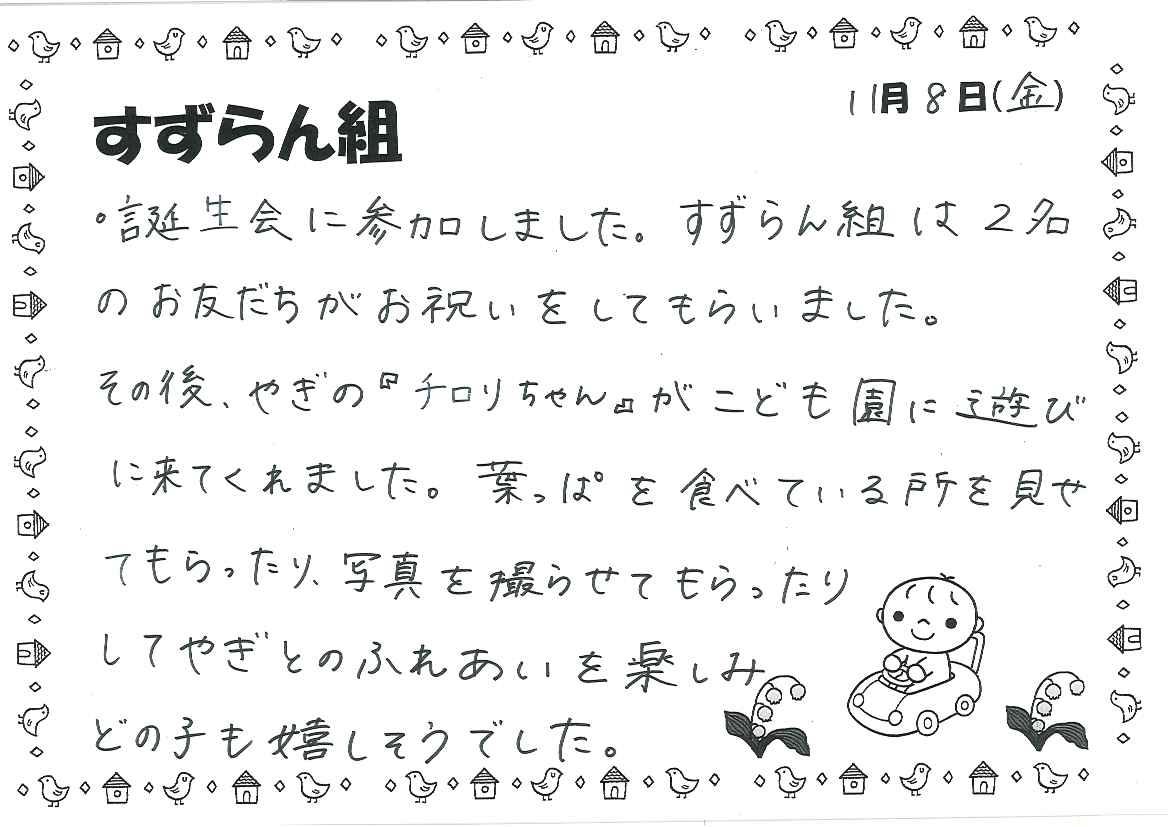 11月8日(金)
すずらん組
・誕生会に参加しました。すずらん組は2名
のお友だちがお祝いをしてもらいました。
その後、やぎの『チロリちゃん』がこども園に遊び
に来てくれました。葉っぱを食べている所を見せ
てもらったり、写真を撮らせてもらったり
してやぎとのふれあいを楽しみ
どの子も嬉しそうでした。